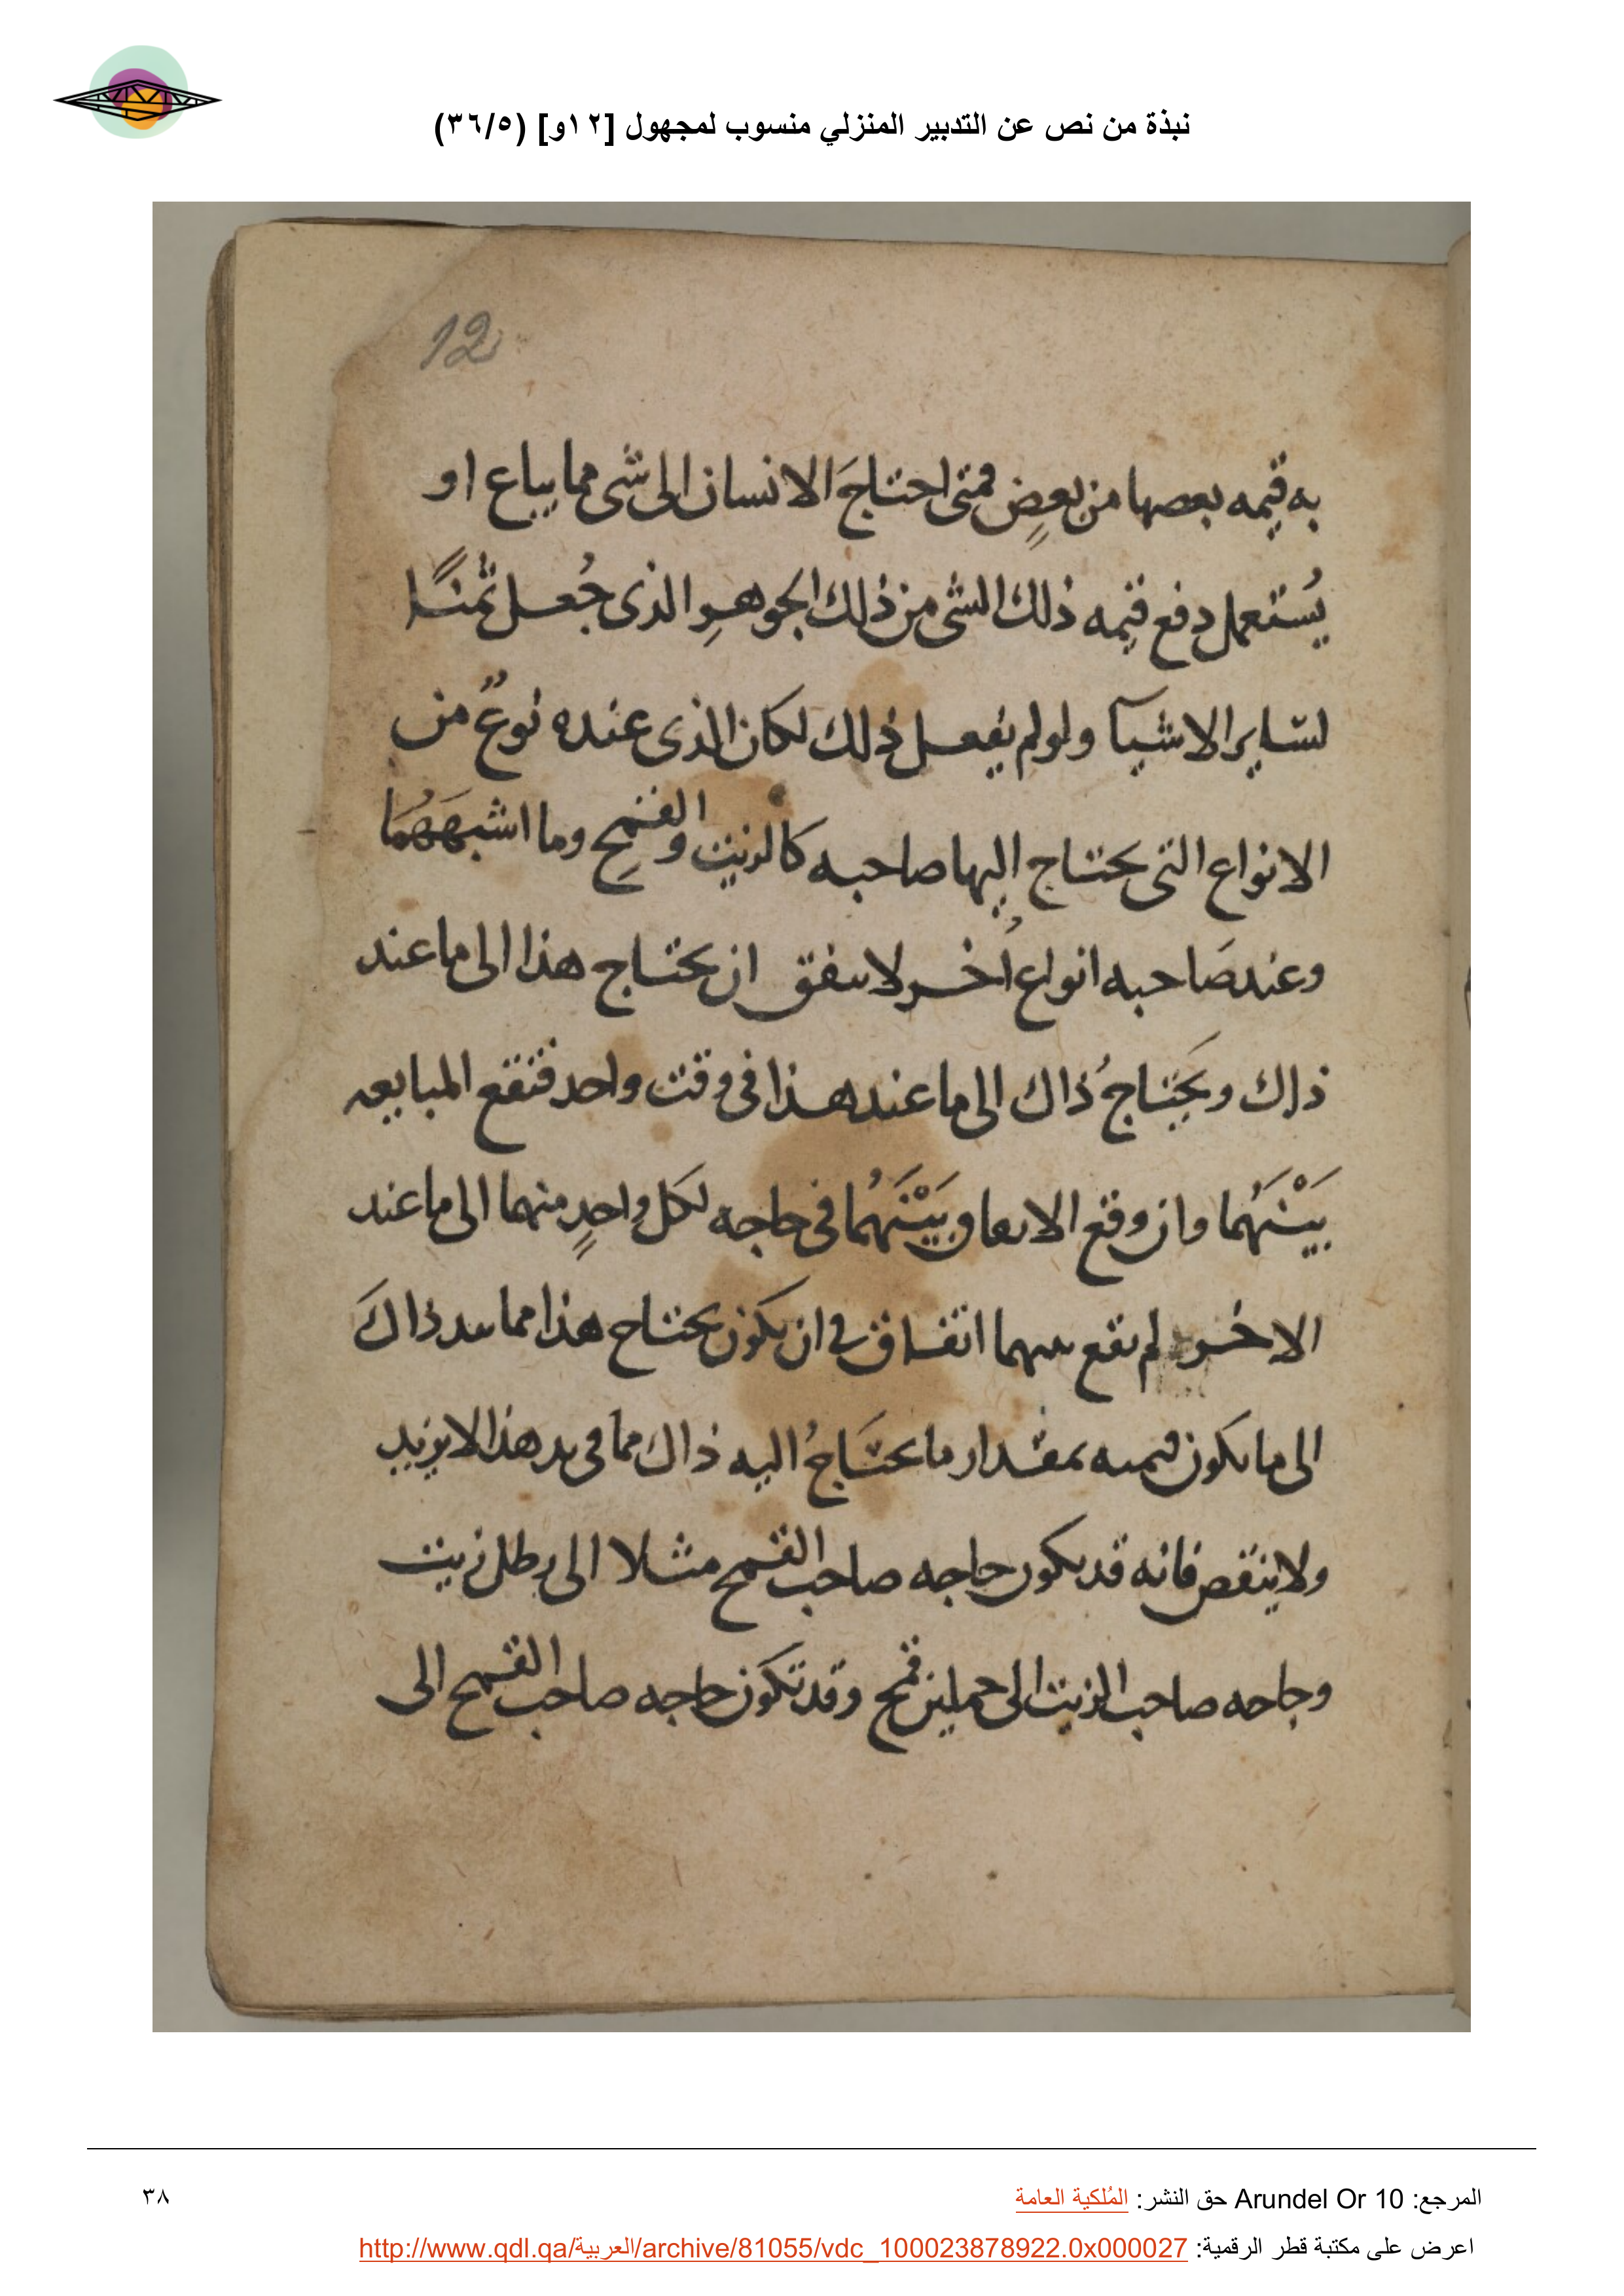 نبذة من نص عن التدبير المنزلي منسوب لمجهول [١٢و] (٣٦/٥)
12
به قيمه بعصها من بعضٍ فمتى احتاجَ الانسان الى شى مما يباع او
يُستعمل دفع قيمه ذلك الشى من ذلك الجوهرِ الذى جُعل ثمنًا
لسايرالاشيآ ولو لم يفعل ذلك لكان الذى عنده نوعٌ من
الانواع التى يحتاج اليها صاحبه كالزيت والقمحِ وما اشبَهَهُمَا
وعند صَاحبه انواع اُخر لا سفق ان يحتاج هذا الى ما عند
ذاك ويَحتاجُ ذاك الى ما عند هذا فى وقت واحد فتقع المبايعه
بَيْنَهُمَا وان وقع الاىعاق بَيْنَهُمَا فى حاجه لكل واحدٍ منهما الى ما عند
الاخر لم ىقع ىىىهما اتفاق فى ان يكون يحتاج هذا مما ىىد ذاكَ
الى ما ىكون قيمىه بمقدار ما يحتَاجُ اليه ذاك مما فى ىد هذا لا يزيد
ولا ينقص فانه قد ىكون حاجه صاحب القمح مثلا الى رطل زيت
وحاجه صاحب الزيت الى حملين قمح وقد تكون حاجه صاحب القمح الى
المرجع: Arundel Or 10 حق النشر: المُلكية العامة
٣٨
اعرض على مكتبة قطر الرقمية: http://www.qdl.qa/العربية/archive/81055/vdc_100023878922.0x000027